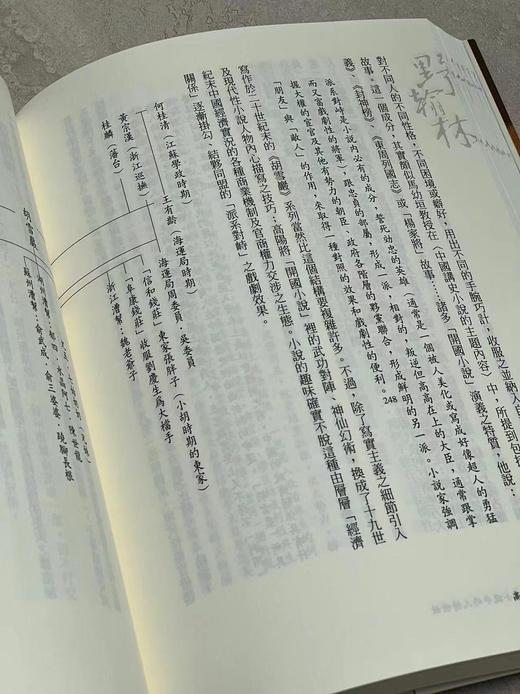 野翰林
對不同人的不同性格，不同困境或癖好，用出不同的手腕巧計，收服之並納入
故事：這一個成分，其實頗似馬幼垣教授在〈中國講史小說的主題內容〉中，所提到包
義》、《封神榜》、《東周列國志》或「楊家將」故事……諸多「開國小說」演義之特質，他說：
派系對峙是小說內必有的成分，誓死効忠的英雄（通常是一個被人美化或寫成好像超人的勇猛
而又富戲劇性的將軍），跟忠貞的部屬，形成一派，相對的，叛逆但高高在上的大臣，通常跟掌
握大權的宦官及其他有勢力的朝臣、政府各階層的夥黨聯合，形成鮮明的另一派。小說家強調
「朋友」與「敵人」的作用，來取得一種對照的效果和戲劇性的便利。248
寫作於二十世紀末的《胡雪巖》系列當然比這個結構要複雜許多。不過，除了寫實主義之細節引入
及現代性小說人物內心描寫之技巧；高陽將「開國小說」裡的武功對陣、神仙幻術，換成了十九世
紀末中國經濟實況的各種商業機制及官商權力交涉之生態。小說的趣味確實不脫這種由層層「經濟
關係」逐漸掛勾、結夥同盟的「派系對峙」之戲劇效果。
何桂清（江蘇學政時期）
王有齡（海運局時期）
海運局周委員、吳委員
黃宗漢（浙江巡撫）
「信和錢莊」東家張胖子（小胡時期的東家）
桂麟（藩台）
「阜康錢莊」收服劉慶生為大檔手
浙江漕幫：魏老爺子
胡雪巖
蘇州漕幫：俞武成、俞三婆婆、蹺腳長根